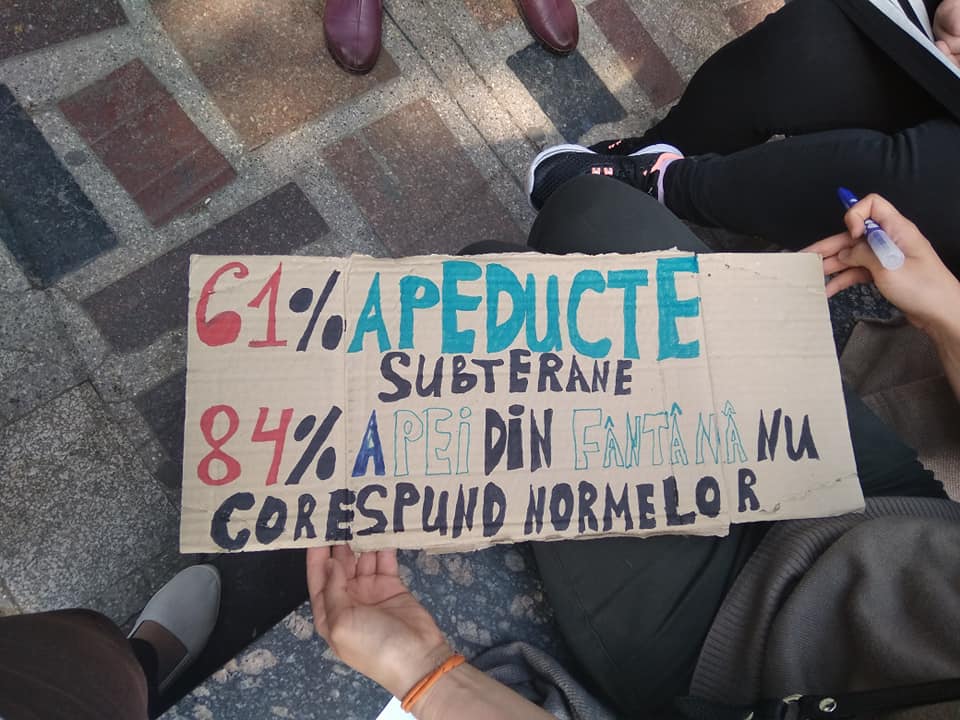 61% APEDUCTE
SUBTERANE
84% APEi DiN FÂNTÂNÂ NU
CORESPUND NORMELOR